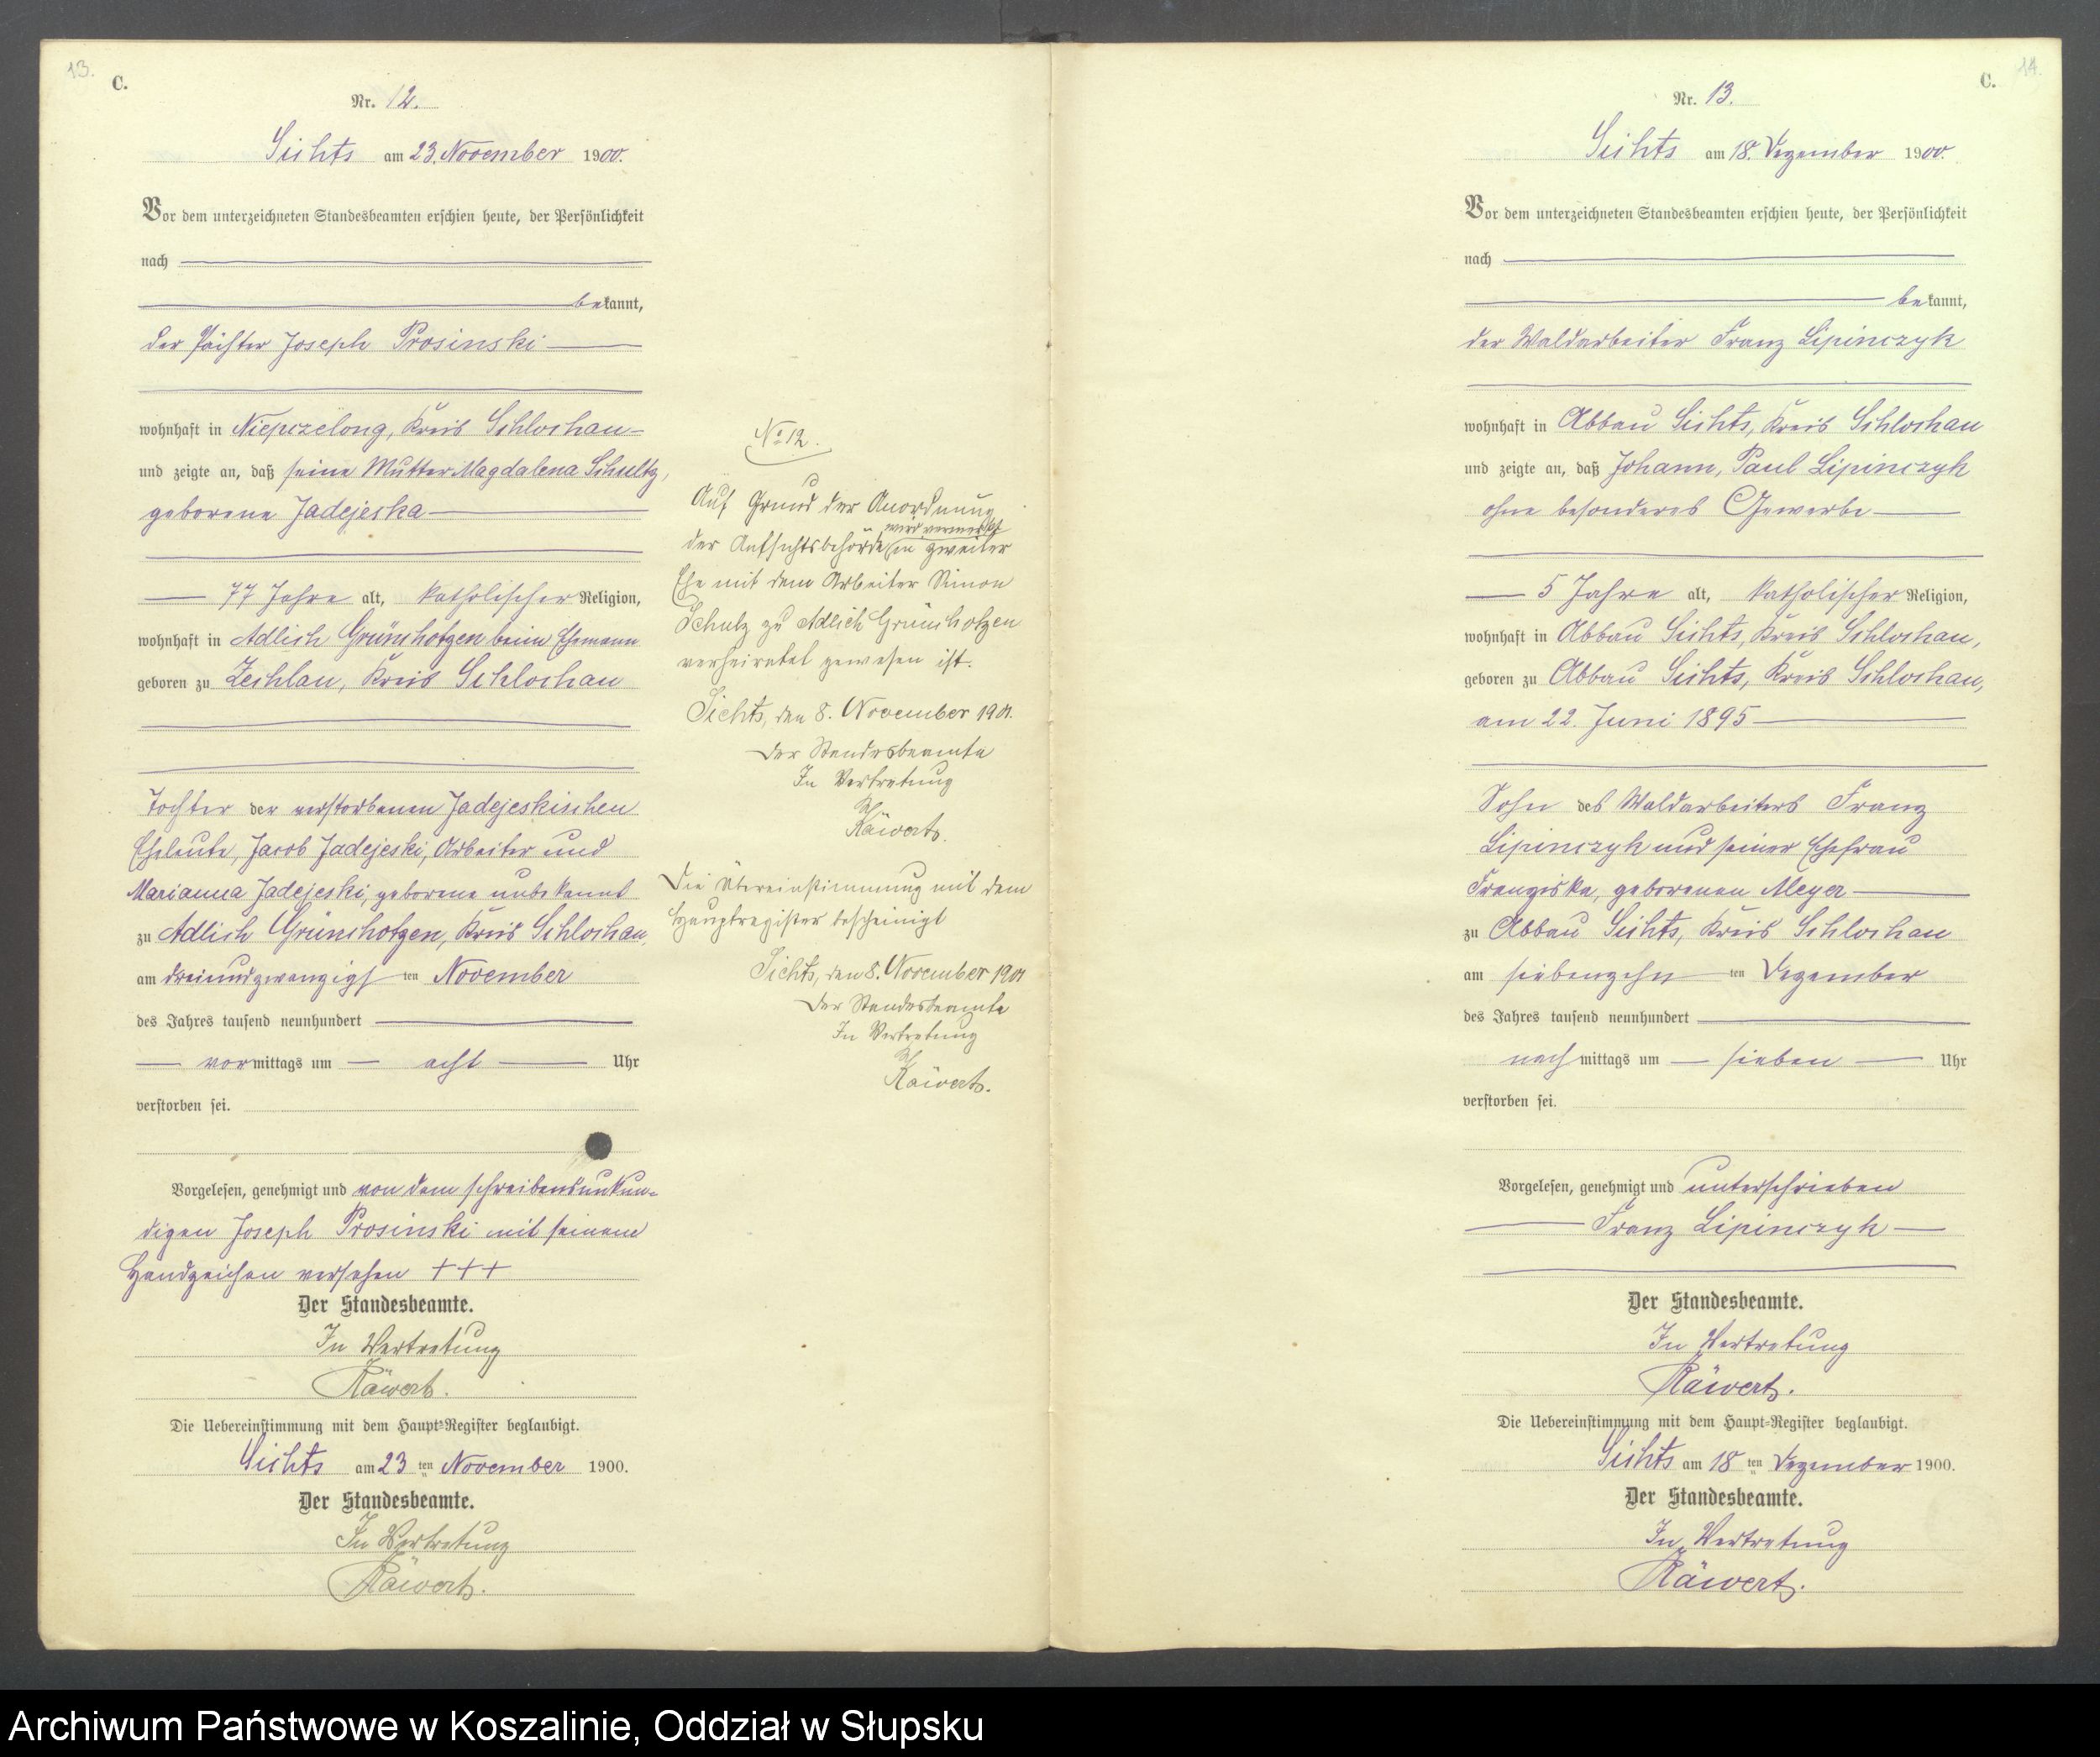 13.
C.
Nr. 12.
Sichts am 23. November 1900.
Vor dem unterzeichneten Standesbeamten erschien heute, der Persönlichkeit
nach
bekannt,
der Pächter Joseph Prosinski
wohnhaft in Niepczelong, Kreis Schlochau
und zeigte an, daß seine Mutter Magdalena Schultz,
geborene Jadejeska
77 Jahre alt, katholischer Religion,
wohnhaft in Adlich Grünchotzen beim Ehemann
geboren zu Zechlau, Kreis Schlochau
Tochter der verstorbenen Jadejeskischen
Eheleute, Jacob Jadejeski, Arbeiter und
Marianna Jadejeski, geborene unbekannt
zu Adlich Grünchotzen, Kreis Schlochau,
am dreiundzwanzigsten November
des Jahres tausend neunhundert
vormittags um acht Uhr
verstorben sei.
Vorgelesen, genehmigt und von dem schreibensunkun-
digen Joseph Prosinski mit seinem
Handzeichen versehen +++
Der Standesbeamte.
In Vertretung
Räwert.
Die Uebereinstimmung mit dem Haupt-Register beglaubigt.
Sichts am 23 ten November 1900.
Der Standesbeamte.
In Vertretung
Räwert.
No 12.
Auf Grund der Anordnung
wird vermerkt
der Aufsichtsbehörde in zweiter
Ehe mit dem Arbeiter Simon
Schulz zu Adlich Grünchotzen
verheiratet gewesen ist.
Sichts, den 8. November 1901.
Der Standesbeamte
In Vertretung
Räwert.
Die Übereinstimmung mit dem
Hauptregister bescheinigt
Sichts, den 8. November 1901
Der Standesbeamte
In Vertretung
Räwert.
14.
C.
Nr. 13.
Sichts am 18. Dezember 1900.
Vor dem unterzeichneten Standesbeamten erschien heute, der Persönlichkeit
nach
bekannt,
der Waldarbeiter Franz Lipinczyk
wohnhaft in Abbau Sichts, Kreis Schlochau
und zeigte an, daß Johann, Paul Lipinczyk
ohne besonderes Gewerbe
5 Jahre alt, katholischer Religion,
wohnhaft in Abbau Sichts, Kreis Schlochau,
geboren zu Abbau Sichts, Kreis Schlochau,
am 22. Juni 1895
Sohn des Waldarbeiters Franz
Lipinczyk und seiner Ehefrau
Franziska, geborenen Meyer
zu Abbau Sichts, Kreis Schlochau
am siebenzehn ten Dezember
des Jahres tausend neunhundert
nachmittags um sieben Uhr
verstorben sei.
Vorgelesen, genehmigt und unterschrieben
Franz Lipinczyk
Der Standesbeamte.
In Vertretung
Räwert.
Die Uebereinstimmung mit dem Haupt-Register beglaubigt.
Sichts am 18 ten Dezember 1900.
Der Standesbeamte.
In Vertretung
Räwert.
Archiwum Państwowe w Koszalinie, Oddział w Słupsku